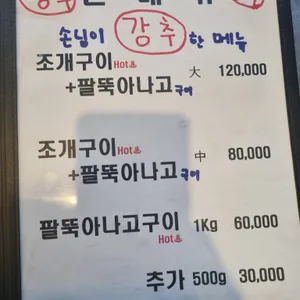 손님이 강추한 메뉴
조개구이 Hot♨
+팔뚝아나고구이 大 120,000
조개구이 Hot♨
+팔뚝아나고구이 中 80,000
팔뚝아나고구이 1Kg 60,000
Hot♨
추가 500g 30,000